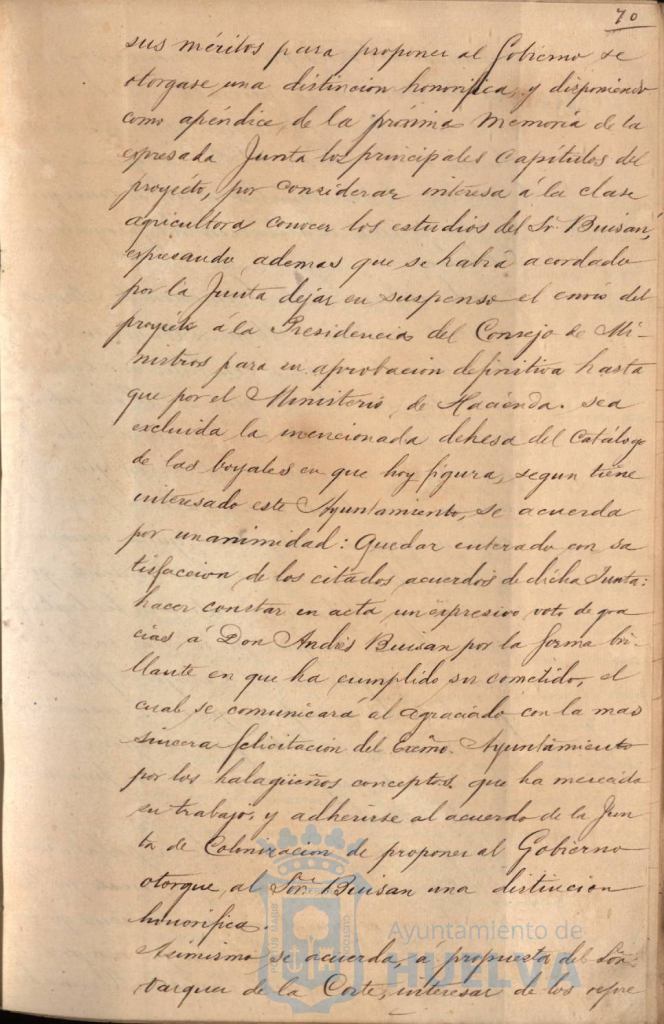 70
sus méritos para proponer al Gobierno se
otorgase una distincion honorifica, y disponiendo
como apéndice de la próxima Memoria de la
expresada Junta los principales Capitulos del
proyécto, por considerar interesa á la clase
agricultora conocer los estudios del Sr. Buisán,
expresando ademas que se habrá acordado
por la Junta dejar en suspenso el envio del
proyécto á la Presidencia del Consejo de Mi-
nistros para su aprobacion definitiva hasta
que por el Ministerio de Hacienda sea
excluida la mencionada dehesa del Catálogo
de las boyales en que hoy figura, segun tiene
interesado este Ayuntamiento, se acuerda
por unanimidad: Quedar enterado con sa
tisfaccion de los citados acuerdos de dicha Junta:
hacer constar en acta un expresivo voto de gra
cias á Don Andrés Buisan por la forma bri-
llante en que ha cumplido su cometido, el
cual se comunicará al agraciado con la mas
sincera felicitacion del Excmo. Ayuntamiento
por los halagüeños conceptos que ha merecido
su trabajo, y adherirse al acuerdo de la Jun
ta de Colonizacion de proponer al Gobierno
otorgue al Sor. Buisan una distincion
honorifica.
Asimismo se acuerda, á propuesta del Sor.
Vazquez de la Corte, interesar de los refe
PORTUS MARIS
CUSTODIA
Ayuntamiento de
HUELVA